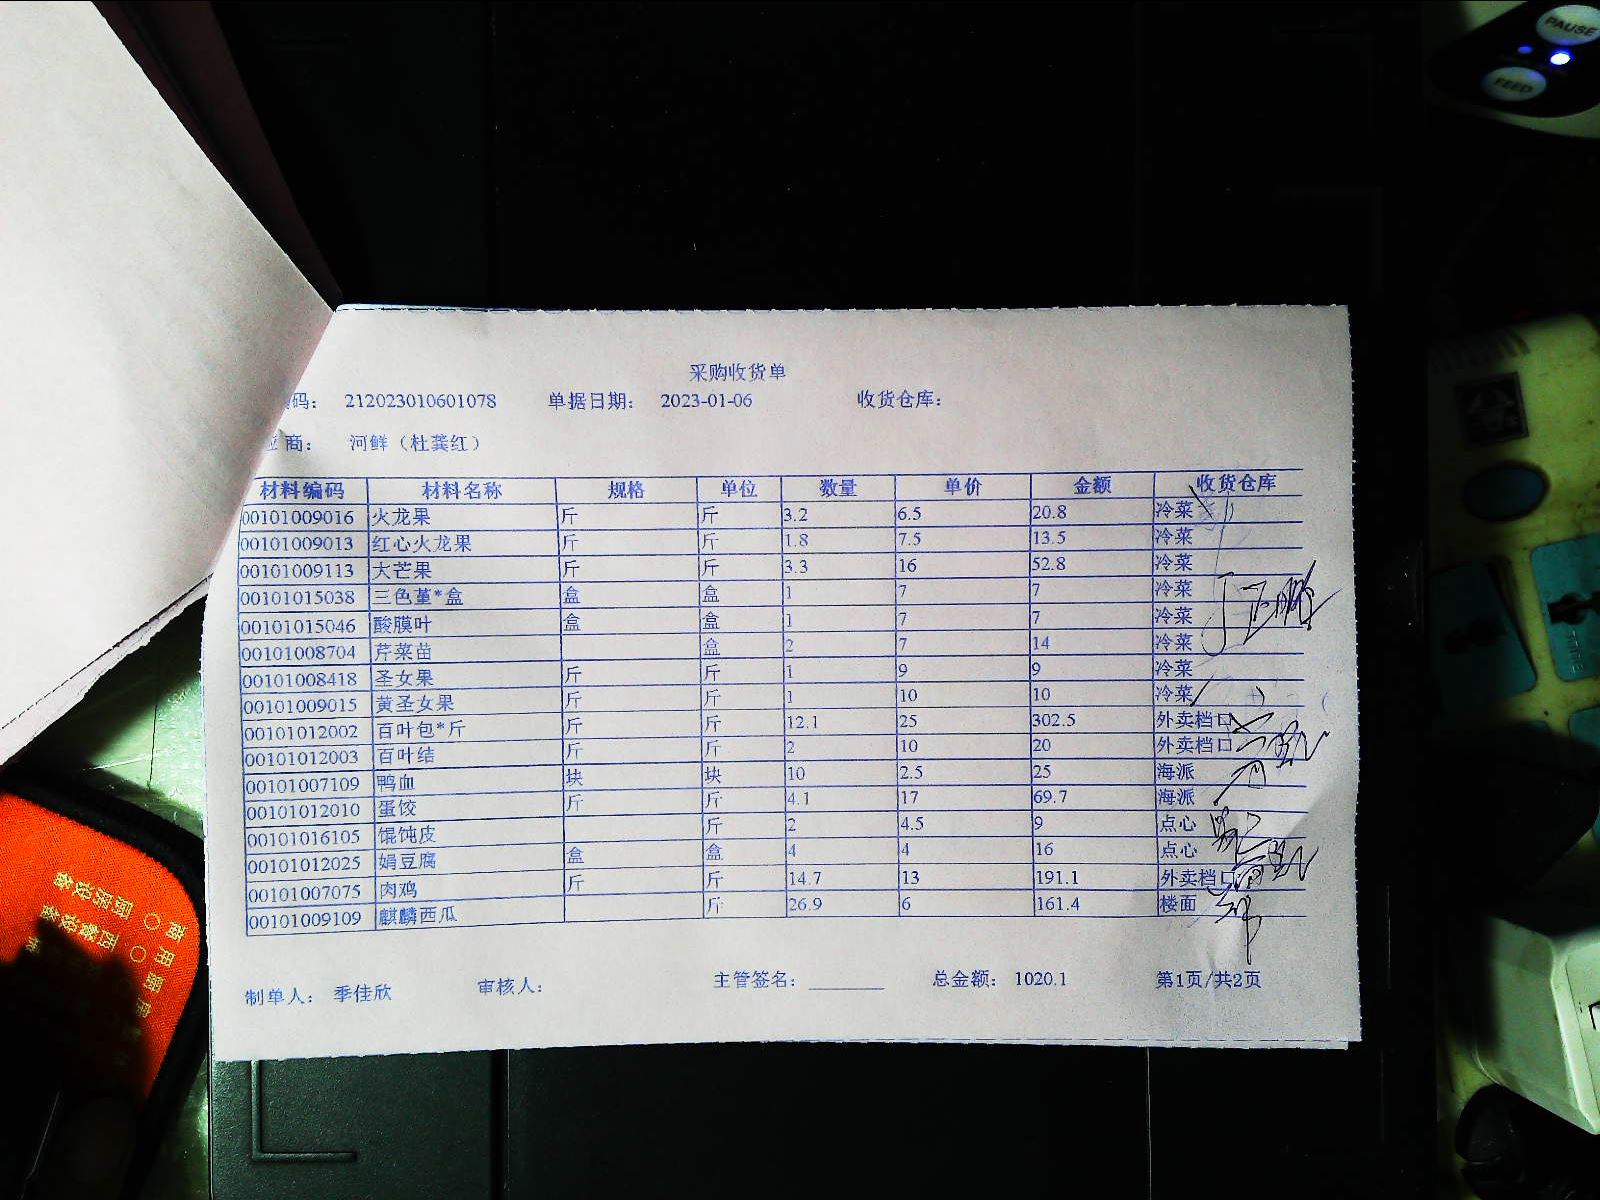 采购收货单
码： 212023010601078 单据日期： 2023-01-06 收货仓库：
商： 河鲜（杜龚红）
材料编码 材料名称 规格 单位 数量 单价 金额 收货仓库
00101009016 火龙果 斤 斤 3.2 6.5 20.8 冷菜
00101009013 红心火龙果 斤 斤 1.8 7.5 13.5 冷菜
00101009113 大芒果 斤 斤 3.3 16 52.8 冷菜
00101015038 三色堇*盒 盒 盒 1 7 7 冷菜
00101015046 酸膜叶 盒 盒 1 7 7 冷菜
00101008704 芹菜苗 盒 2 7 14 冷菜
00101008418 圣女果 斤 斤 1 9 9 冷菜
00101009015 黄圣女果 斤 斤 1 10 10 冷菜
00101012002 百叶包*斤 斤 斤 12.1 25 302.5 外卖档口
00101012003 百叶结 斤 斤 2 10 20 外卖档口
00101007109 鸭血 块 块 10 2.5 25 海派
00101012010 蛋饺 斤 斤 4.1 17 69.7 海派
00101016105 馄饨皮 斤 2 4.5 9 点心
00101012025 娟豆腐 盒 盒 4 4 16 点心
00101007075 肉鸡 斤 斤 14.7 13 191.1 外卖档口
00101009109 麒麟西瓜 斤 26.9 6 161.4 楼面
制单人： 季佳欣 审核人： 主管签名： 总金额： 1020.1 第1页/共2页
PAUSE
FEED
商用厨房
厨房设备
西餐设备